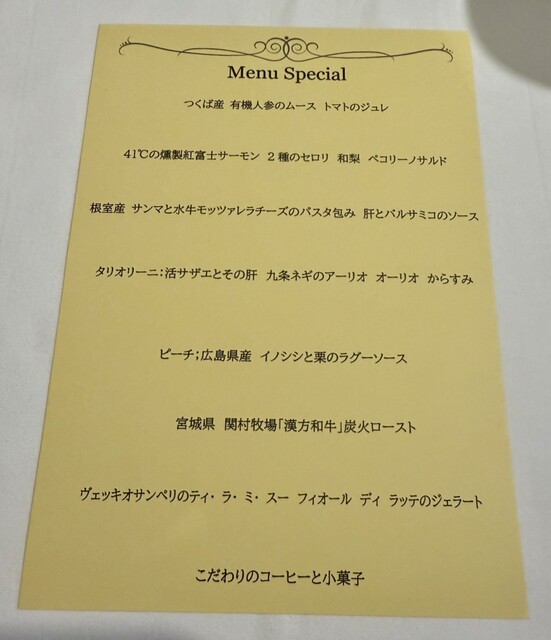 Menu Special
つくば産 有機人参のムース トマトのジュレ
41℃の燻製紅富士サーモン 2種のセロリ 和梨 ペコリーノサルド
根室産 サンマと水牛モッツァレラチーズのパスタ包み 肝とバルサミコのソース
タリオリーニ:活サザエとその肝 九条ネギのアーリオ オーリオ からすみ
ピーチ;広島県産 イノシシと栗のラグーソース
宮城県 関村牧場「漢方和牛」炭火ロースト
ヴェッキオサンペリのティ・ラ・ミ・スー フィオール ディ ラッテのジェラート
こだわりのコーヒーと小菓子